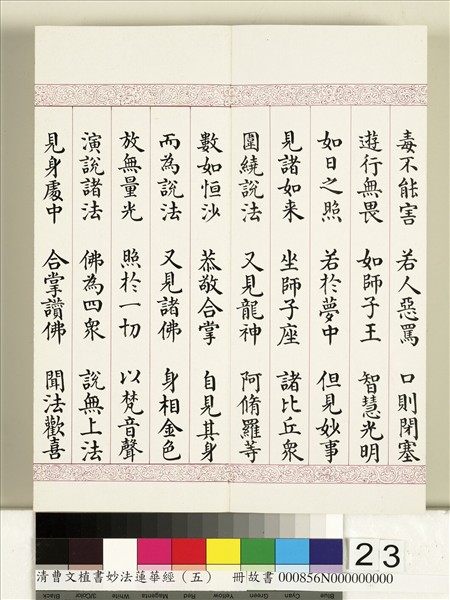 毒不能害 若人惡罵 口則閉塞
遊行無畏 如師子王 智慧光明
如日之照 若於夢中 但見妙事
見諸如来 坐師子座 諸比丘眾
圍繞說法 又見龍神 阿脩羅等
數如恒沙 恭敬合掌 自見其身
而為說法 又見諸佛 身相金色
放無量光 照於一切 以梵音聲
演說諸法 佛為四眾 說無上法
見身處中 合掌讚佛 聞法歡喜
23
清曹文植書妙法蓮華經（五） 冊故書 000856N000000000
Black 3/Color White Magenta Red Yellow Green Cyan Blue